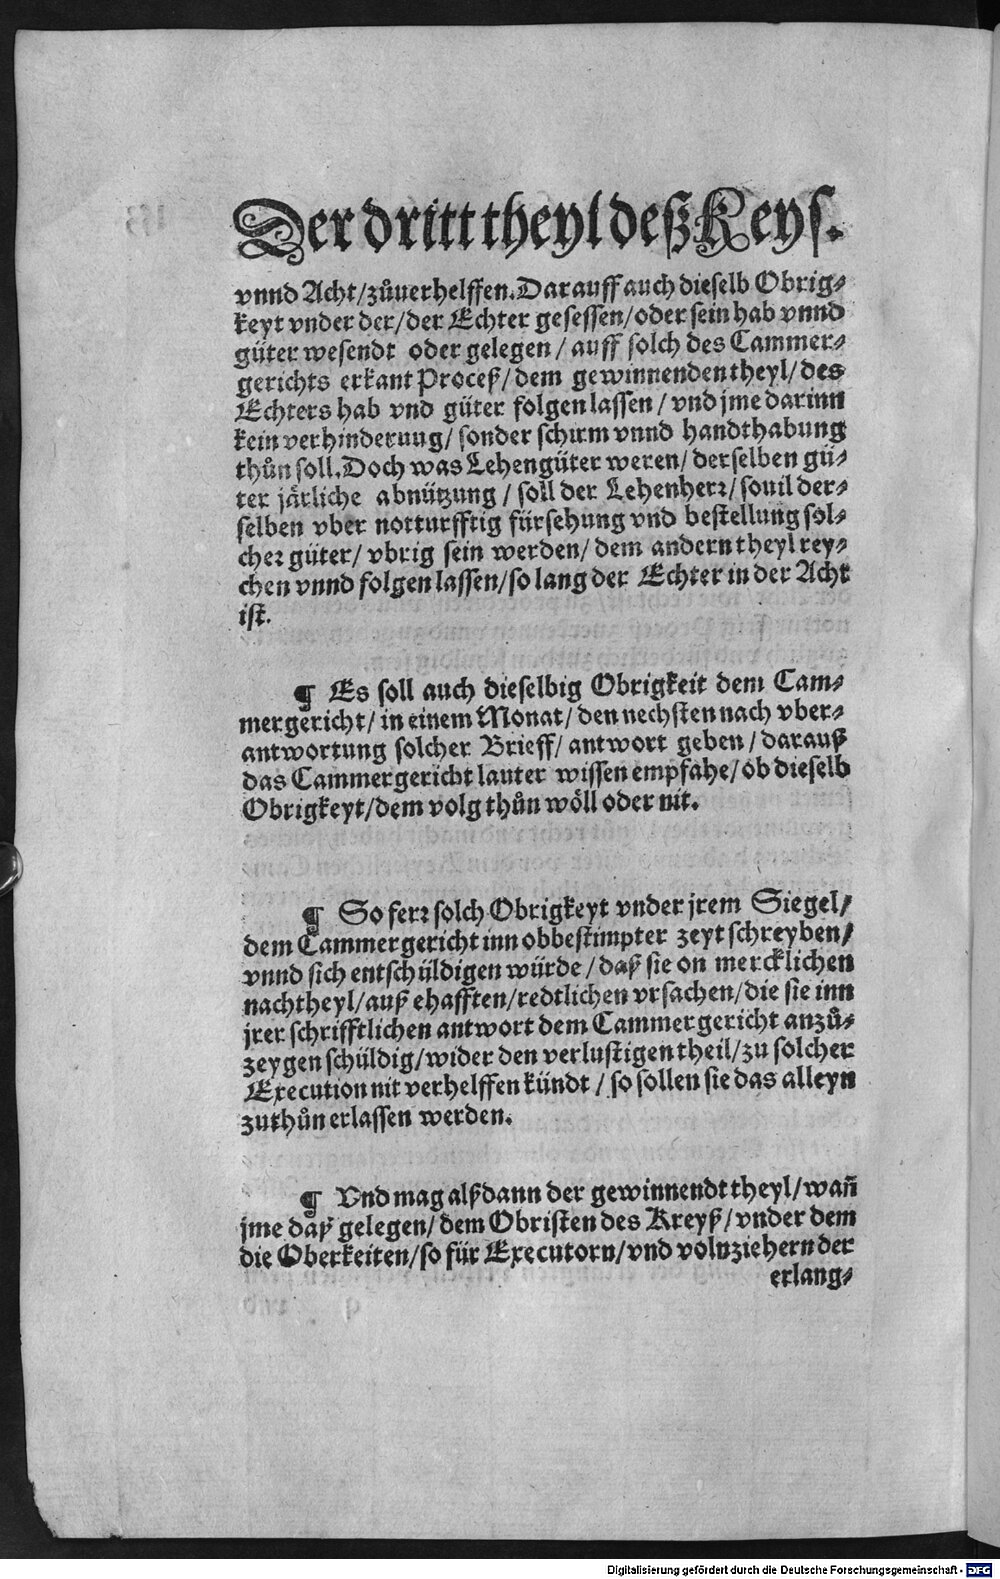 Der dritt theyl deß Keys.
vnnd Acht/zůuerhelffen. Darauff auch dieselb Obrig-
keyt vnder der/der Echter gesessen/oder sein hab vnnd
güter wesendt oder gelegen/auff solch des Cammer-
gerichts erkant Proceß/dem gewinnenden theyl/des
Echters hab vnd güter folgen lassen/vnd jme darinn
kein verhinderung/sonder schirm vnnd handthabung
thůn soll. Doch was Lehengüter weren/derselben gü-
ter järliche abnützung/soll der Lehenherr/souil der-
selben vber notturfftig fürsehung vnd bestellung sol-
cher güter/vbrig sein werden/dem andern theyl rey-
chen vnnd folgen lassen/so lang der Echter in der Acht
ist.
¶ Es soll auch dieselbig Obrigkeit dem Cam-
mergericht/in einem Monat/den nechsten nach vber-
antwortung solcher Brieff/antwort geben/darauß
das Cammergericht lauter wissen empfahe/ob dieselb
Obrigkeyt/dem volg thůn wöll oder nit.
¶ So ferr solch Obrigkeyt vnder jrem Siegel/
dem Cammergericht inn obbestimpter zeyt schreyben/
vnnd sich entschüldigen würde/daß sie on mercklichen
nachtheyl/auß ehafften/redtlichen vrsachen/die sie inn
jrer schrifftlichen antwort dem Cammergericht anzů-
zeygen schüldig/wider den verlustigen theil/zu solcher
Execution nit verhelffen kündt/so sollen sie das alleyn
zuthůn erlassen werden.
¶ Vnd mag alßdann der gewinnendt theyl/wañ
jme daß gelegen/dem Obristen des Kreyß/vnder dem
die Oberkeiten/so für Executorn/vnd volnziehern der
erlang-
Digitalisierung gefördert durch die Deutsche Forschungsgemeinschaft - DFG